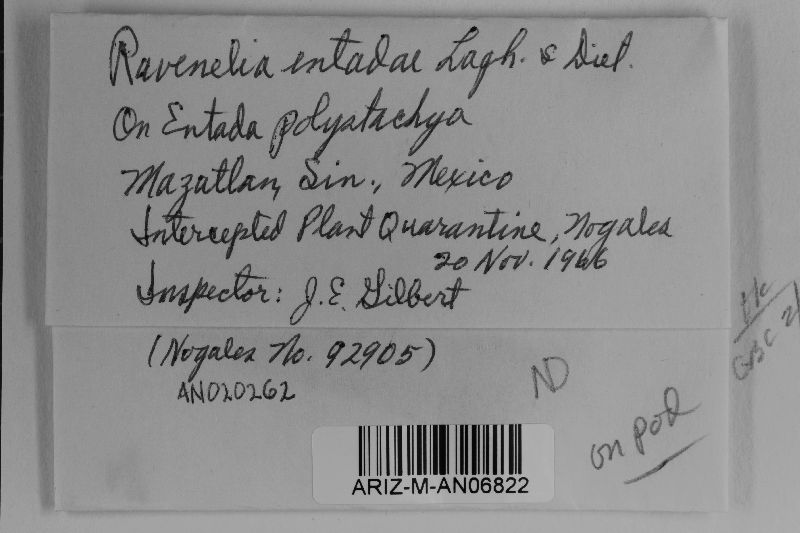 Ravenelia entadae Lagh. & Diet.
On Entada polystachya
Mazatlan, Sin., Mexico
Intercepted Plant Quarantine, Nogales
20 Nov. 1966
Inspector: J.E. Gilbert
(Nogales No. 92905)
AN020262
ND
on pod
ARIZ-M-AN06822